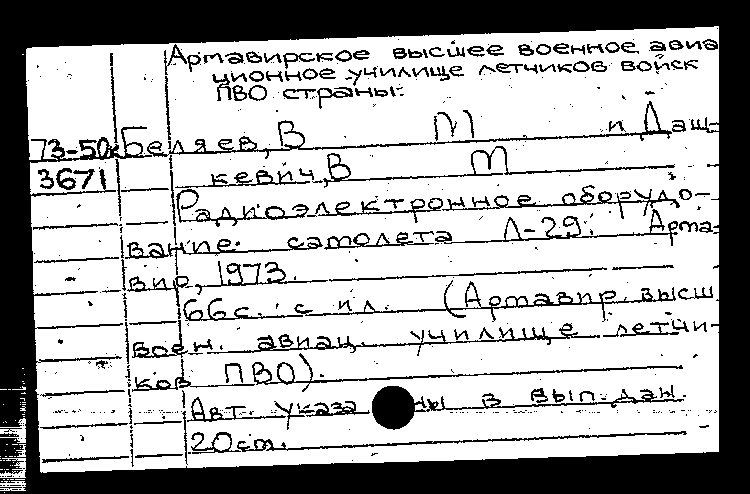 Армавирское высшее военное авиа
ционное училище летчиков войск
ПВО страны.
73-50к Беляев, В М и Даш-
3671 кевич, В М
Радиоэлектронное оборудо-
вание самолета Л-29. Арма-
вир, 1973.
66с. с ил. (Армавир. высш.
воен. авиац. училище летчи-
ков ПВО).
Авт. указа ны в вып. дан.
20см.